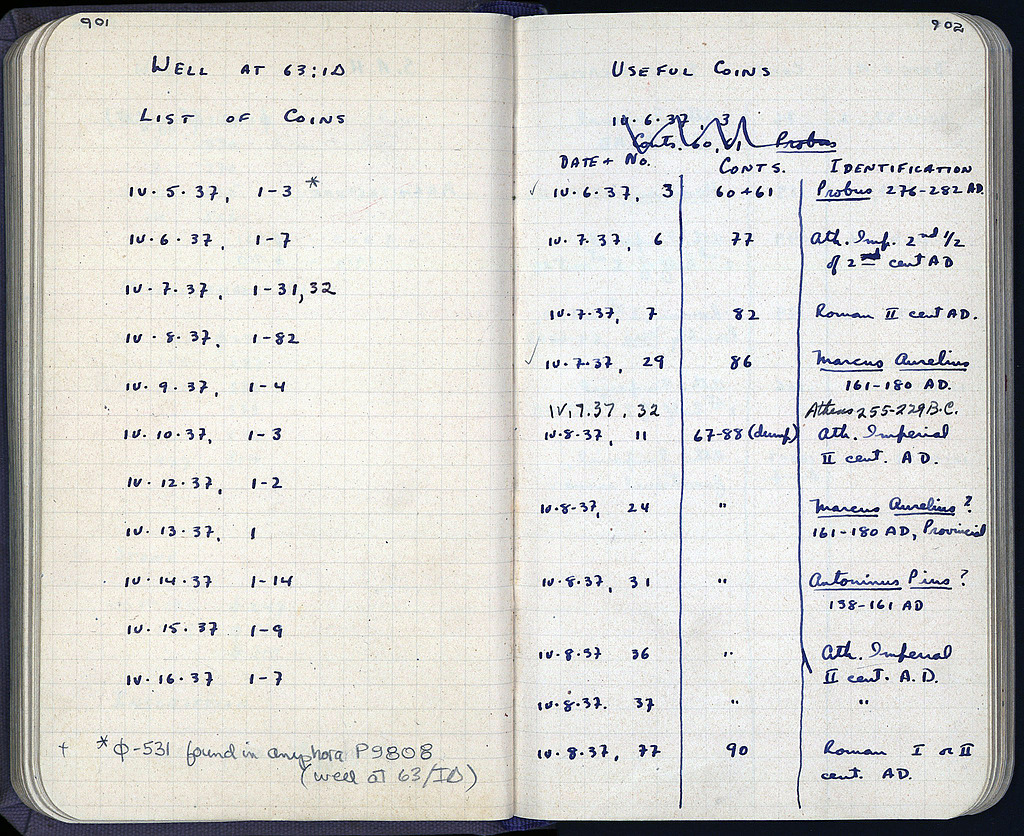 901
WELL AT 63:ΙΔ
LIST OF COINS
IV.5.37, 1-3 *
IV.6.37, 1-7
IV.7.37, 1-31, 32
IV.8.37, 1-82
IV.9.37, 1-4
IV.10.37, 1-3
IV.12.37, 1-2
IV.13.37, 1
IV.14.37 1-14
IV.15.37 1-9
IV.16.37 1-7
+ *Φ-531 found in amphora P9808
(well at 63/ΙΔ)
902
USEFUL COINS
IV.6.37, 3
Conts. 60, 61 Probus
DATE + No. CONTS. IDENTIFICATION
✓ IV.6.37, 3 60+61 Probus 276-282 AD.
IV.7.37, 6 77 Ath. Imp. 2nd 1/2
of 2nd cent AD
IV.7.37, 7 82 Roman II cent AD.
✓ IV.7.37, 29 86 Marcus Aurelius
161-180 AD.
IV,7.37, 32 Athens 255-229 B.C.
IV.8.37, 11 67-88 (dump) Ath. Imperial
II cent. A D.
IV.8.37, 24 " Marcus Aurelius ?
161-180 AD, Provincial
IV.8.37, 31 " Antoninus Pius ?
138-161 AD
IV.8.37 36 " Ath. Imperial
II cent. A.D.
IV.8.37. 37 " "
IV.8.37, 77 90 Roman I or II
cent. AD.